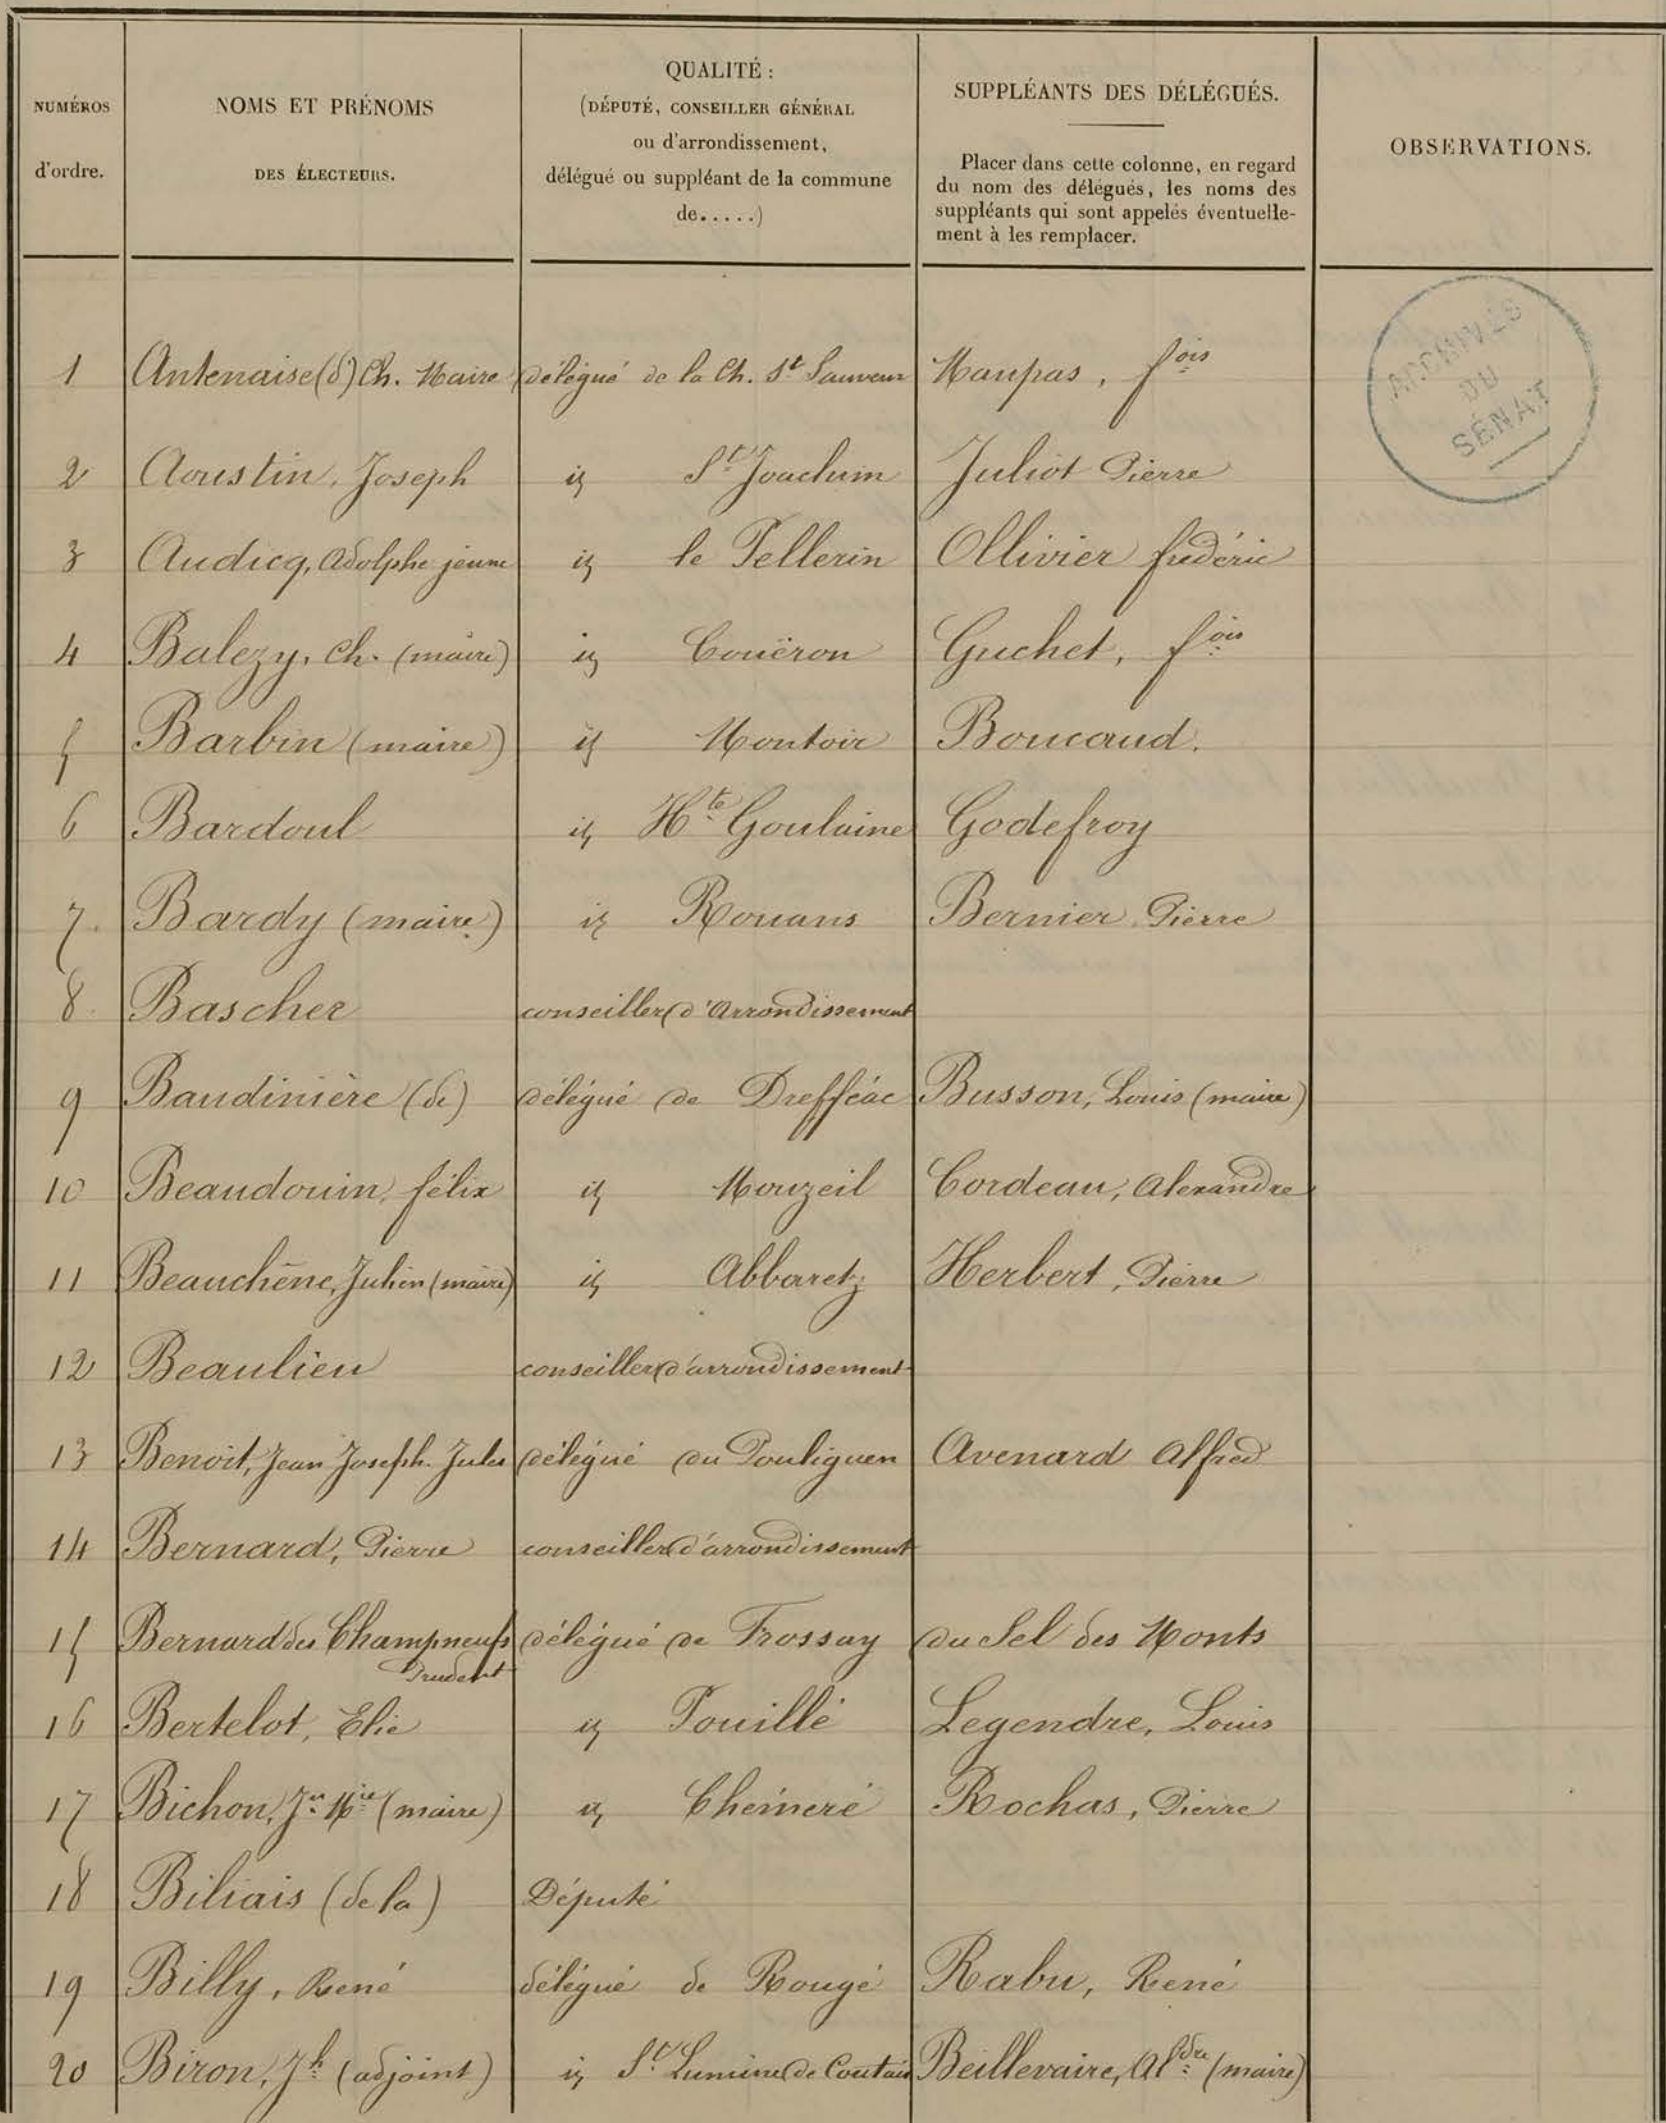 NUMÉROS d'ordre. | NOMS ET PRÉNOMS DES ÉLECTEURS. | QUALITÉ : (DÉPUTÉ, CONSEILLER GÉNÉRAL ou d'arrondissement, délégué ou suppléant de la commune de.....) | SUPPLÉANTS DES DÉLÉGUÉS. Placer dans cette colonne, en regard du nom des délégués, les noms des suppléants qui sont appelés éventuellement à les remplacer. | OBSERVATIONS.
ARCHIVES DU SÉNAT
1 Antenaise (d') Ch. Maire délégué de la Ch. St Sauveur Maupas, fois
2 Aoustin, Joseph id St Joachim Juliot Pierre
3 Audicq, Adolphe jeune id le Pellerin Ollivier frédéric
4 Balezy, Ch. (maire) id Couëron Guchet, fois
5 Barbin (maire) id Montoir Boucaud.
6 Bardoul id Hte Goulaine Godefroy
7. Bardy (maire) id Rouans Bernier Pierre
8. Bascher conseiller d'Arrondissement
9 Baudinière (de) délégué de Drefféac Busson, Louis (maire)
10 Beaudouin, félix id Mouzeil Cordeau, Alexandre
11 Beauchêne, Julien (maire) id Abbaretz Herbert, Pierre
12 Beaulieu conseiller d'arrondissement
13 Benoit, Jean Joseph. Jules délégué du Pouliguen Avenard Alfred
14 Bernard, Pierre conseiller d'arrondissement
15 Bernard des Champneufs délégué de Frossay du Sel des Monts
Prudent
16 Bertelot, Elie id Pouillé Legendre, Louis
17 Bichon, Jn Mie (maire) id Chéméré Rochas, Pierre
18 Biliais (de la) Député
19 Billy, René délégué de Rougé Rabu, René
20 Biron, Jh (adjoint) id St Lumine de Coutais Beillevaire, Aldre (maire)